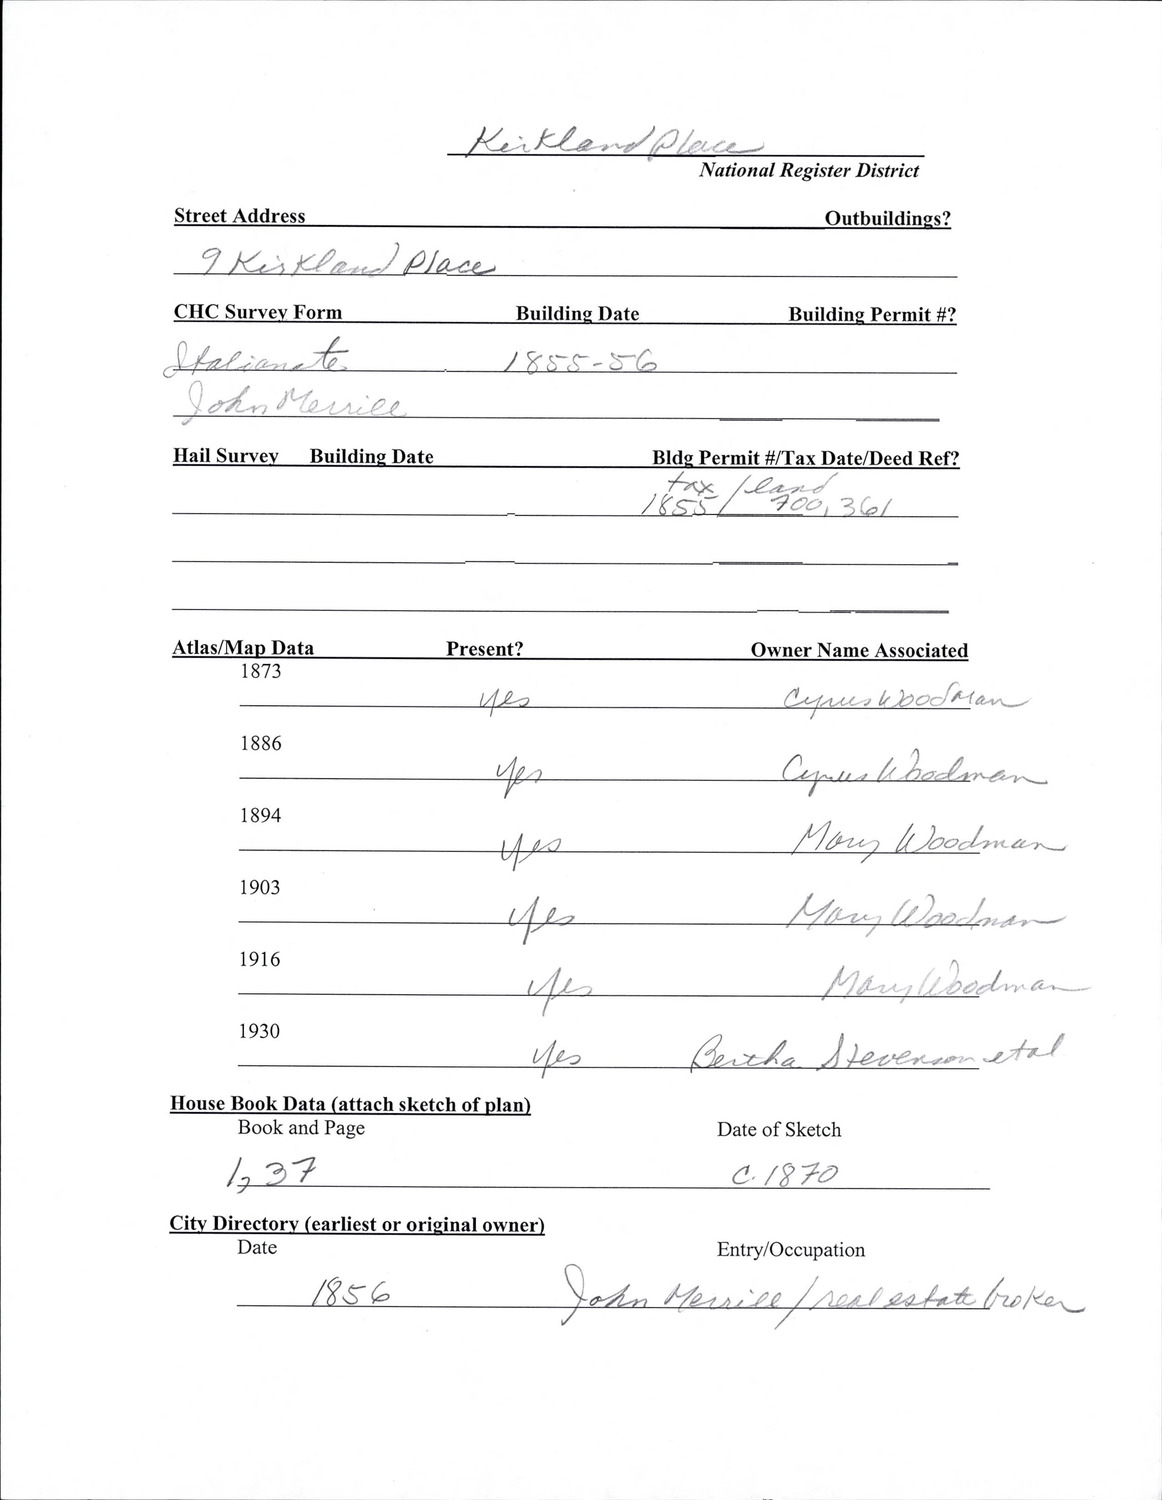 Kirkland Place
National Register District
Street Address Outbuildings?
9 Kirkland Place
CHC Survey Form Building Date Building Permit #?
Italianate 1855-56
John Merrill
Hail Survey Building Date Bldg Permit #/Tax Date/Deed Ref?
tax / land
1855 / 700, 361
Atlas/Map Data Present? Owner Name Associated
1873
yes Cyrus Woodman
1886
yes Cyrus Woodman
1894
yes Mary Woodman
1903
yes Mary Woodman
1916
yes Mary Woodman
1930
yes Bertha Stevenson etal
House Book Data (attach sketch of plan)
Book and Page Date of Sketch
1, 37 c. 1870
City Directory (earliest or original owner)
Date Entry/Occupation
1856 John Merrill / real estate broker